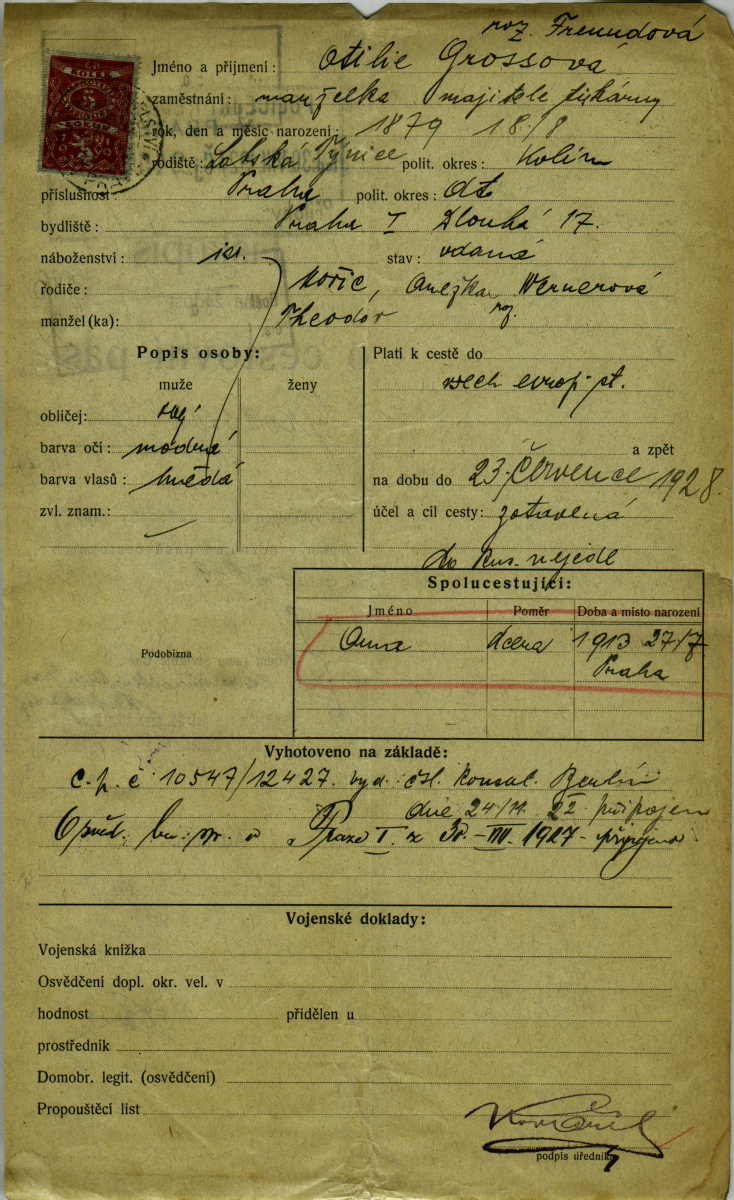 roz. Freundová
Jméno a příjmení: Otilie Grossová
zaměstnání: manželka majitele tiskárny
rok, den a měsíc narození: 1879 18/8
rodiště: Labská Týnice polit. okres: Kolín
příslušnost Praha polit. okres: dt
bydliště: Praha I Dlouhá 17.
náboženství: isr. stav: vdaná
rodiče: Mořic, Anežka Wernerová
manžel(ka): Theodór roz.
Popis osoby: Platí k cestě do
muže ženy všech evrop. st.
obličej:
barva očí: modrá a zpět
barva vlasů: hnědá na dobu do 23. července 1928.
zvl. znam.: účel a cíl cesty: zotavená
do
Spolucestující:
Jméno Poměr Doba a místo narození
Anna dcera 1913 27/7
Praha
Podobizna
Vyhotoveno na základě:
c. p. č 10547/12427. vyd. čsl. konsul. Berlín
dne 24/11 22 připojen
v Praze I. z 30.-VIII. 1927
Vojenské doklady:
Vojenská knížka
Osvědčení dopl. okr. vel. v
hodnost přidělen u
prostředník
Domobr. legit. (osvědčení)
Propouštěcí list
podpis úředníka
KOLEK
5